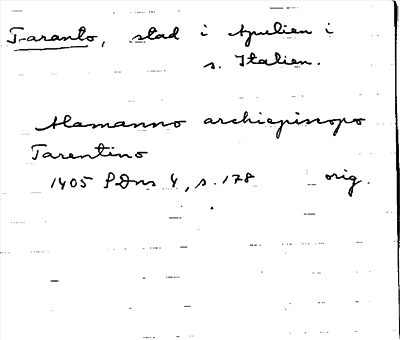 Taranto, stad i Apulien i
s. Italien.
Alamanno archiepiscopo
Tarentino
1405 SDns 4, s. 178 orig.